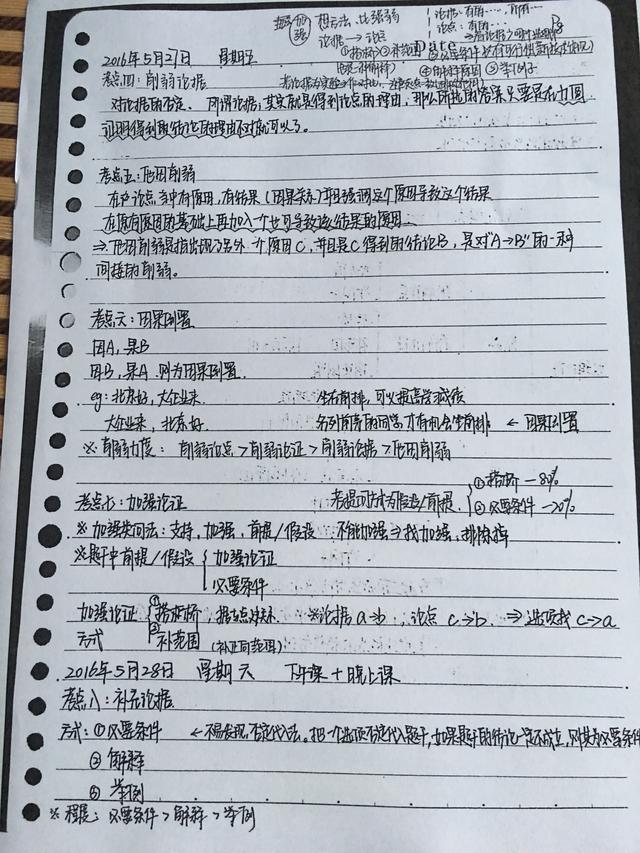 加强 想方法,比强弱 论据:有的…,所有…
论据→论点 论点:有的…
①搭桥②补范围 Date
2016年5月27日 星期五
④解释原因 ⑤举例子
考点四:削弱论据
对论据的否定。所谓论据,其实就是得到论点的理由,那么所选的答案只要是在力图
证明得到的结论的理由不对就可以了。
考点五:他因削弱
在论点中有原因,有结果(因果关系)并且强调这个原因导致这个结果
在原有原因的基础上再加入一个也可导致该结果的原因
⇒他因削弱是指出现了另外一个原因C,并且是C得到的结论B,是对“A→B”的一种
间接的削弱。
考点六:因果倒置
因A,果B
因B,果A 则为因果倒置.
eg:北京好,大企业来. 坐在前排,可以提高学习成绩
大企业来,北京好. 名列前茅的同学,才有机会坐前排. ← 因果倒置
※ 削弱力度: 削弱论点>削弱论证>削弱论据>他因削弱
考点七:加强论证 考提问方式为假设/前提 ①搭桥—80% ②必要条件—20%
※ 加强类问法:支持,加强,前提/假设 不能加强⇒找加强,排除掉
※题干中前提/假设 加强论证
必要条件
加强论证 ①搭桥, ※论据a→b,论点 c→b. ⇒选项找c→a
方式 ②补范围 (补正向范围)
2016年5月28日 星期天 下午课+晚上课
考点八:补充论据
方式:①必要条件 ←不易发现,否定代入法。把一个选项否定代入题干,如果题干的结论一定不成立,则其为必要条件
②解释
③举例
※ 程度:必要条件>解释>举例